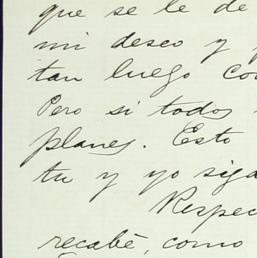 que se le de
mi deseo y
tan luego
Pero si todos
planes. Esto
tu y yo
Respec
recabè, como